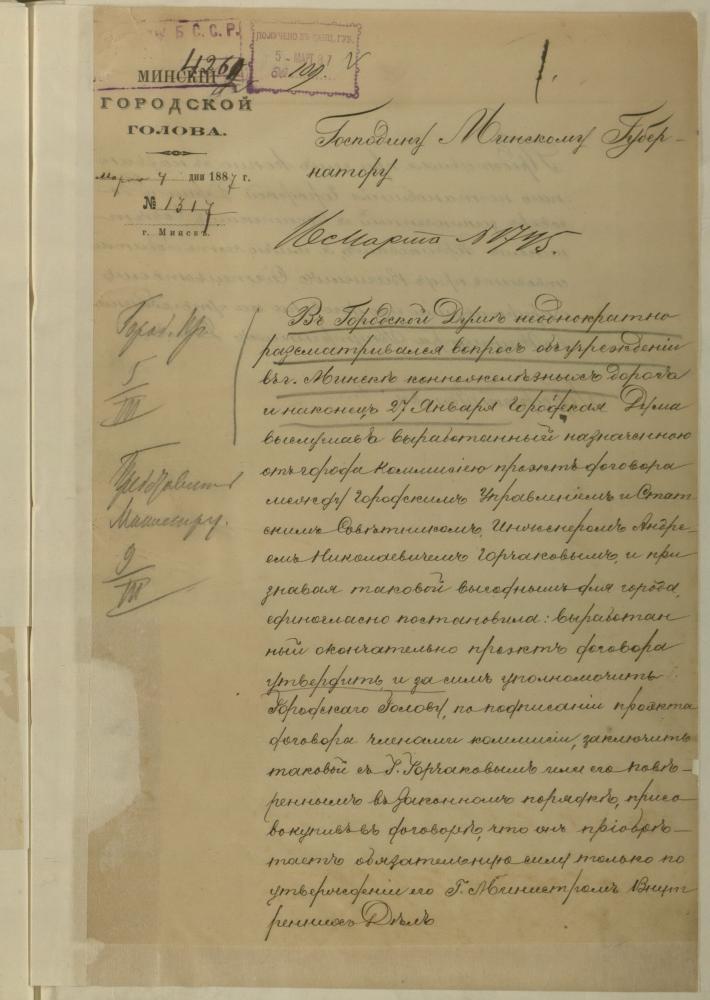 Б. С. С. Р.
ПОЛУЧЕНО ВЪ КАНЦ. ГУБ.
5 - МАРТ 87
109
1.
МИНСКІЙ
ГОРОДСКОЙ
ГОЛОВА.
Марта 4 дня 1887 г.
№ 1317
г. Минскъ.
Господину Минскому Губер-
натору
Гор. Пр.
5
III
Министру.
9
III
Въ Городской Думѣ неоднократно
разсматривался вопросъ объ учрежденіи
въ г. Минскѣ конножелѣзныхъ дорогъ
и наконецъ 27 Января Городская Дума
выслушавъ выработанный назначенною
отъ города коммисіею проэктъ договора
между Городскимъ Управленіемъ и Стат-
скимъ Совѣтникомъ, Инженеромъ Андре-
емъ Николаевичемъ Горчаковымъ, и при-
знавая таковой выгоднымъ для города,
единогласно постановила: выработан-
ный окончательно проэктъ договора
утвердить и за симъ уполномочить
Городскаго Голову, по подписаніи проэкта
договора членами коммисіи, заключить
таковой съ Г. Горчаковымъ или его повѣ-
реннымъ въ законномъ порядкѣ, присо
вокупивъ въ договорѣ, что онъ пріобрѣ-
таетъ обязательную силу только по
утвержденіи его Г. Министромъ Внут
реннихъ Дѣлъ